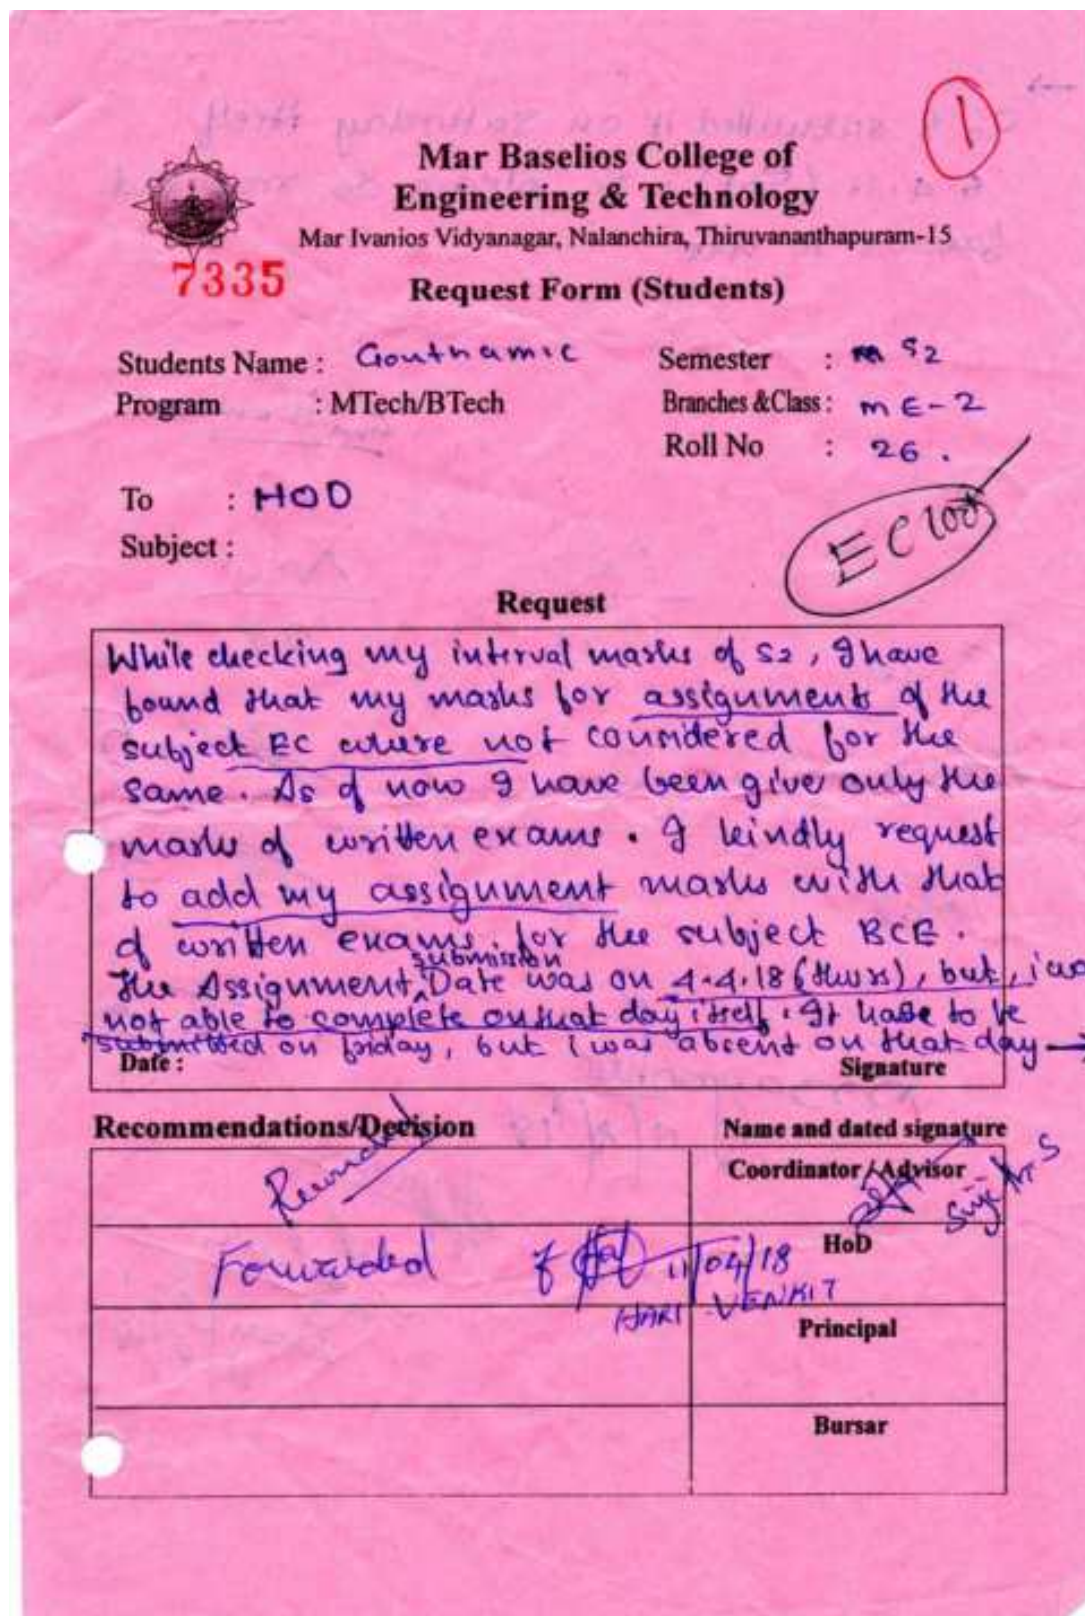 1
Mar Baselios College of
Engineering & Technology
Mar Ivanios Vidyanagar, Nalanchira, Thiruvananthapuram-15
7335
Request Form (Students)
Students Name : Gouthamic
Semester : M S2
Program : MTech/BTech
Branches &Class : ME-2
Roll No : 26 .
To : HOD
Subject :
EC100
Request
While checking my interval marks of S2, I have
found that my marks for assignments of the
subject EC where not considered for the
same. As of now I have been give only the
marks of written exams. I kindly request
to add my assignment marks with that
of written exams. for the subject BCE.
submission
The Assignment Date was on 4.4.18 (thurs), but, i was
not able to complete on that day itself. It have to be
submitted on friday, but i was absent on that day →
Date :
Signature
Recommendations/Decision
Name and dated signature
Coordinator / Advisor
Forwarded
11/04/18
HoD
HARI VENKIT
Principal
Bursar